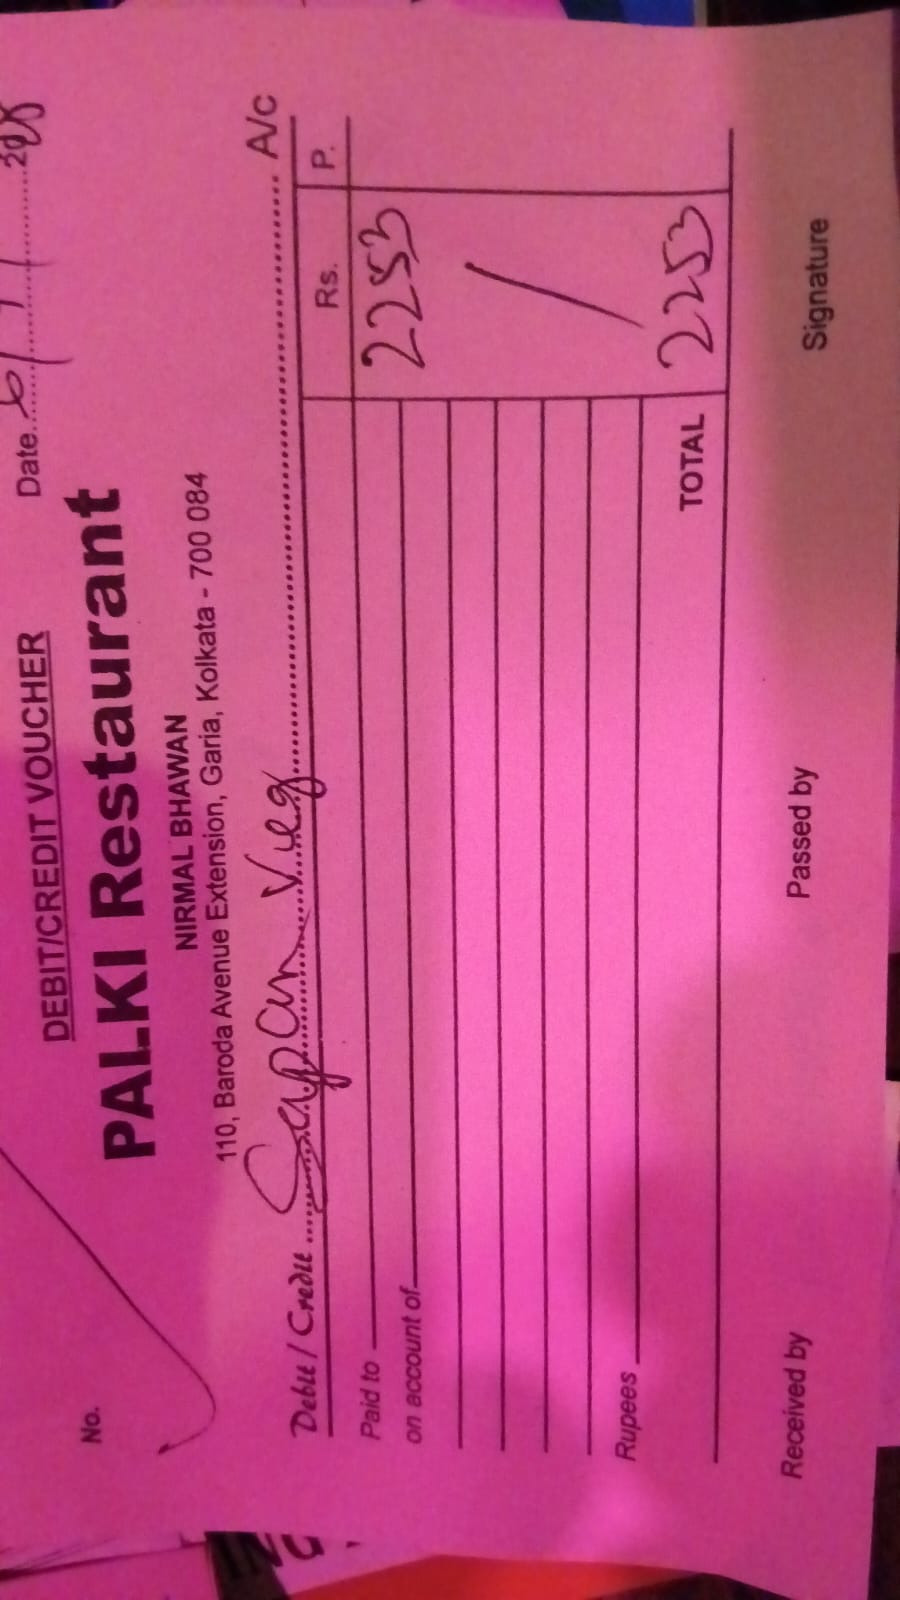 DEBIT/CREDIT VOUCHER
No.
Date 6/1/
PALKI Restaurant
NIRMAL BHAWAN
110, Baroda Avenue Extension, Garia, Kolkata - 700 084
Debit / Credit Sapan Veg A/c
Rs. P.
Paid to 2253
on account of
Rupees
TOTAL 2253
Received by Passed by Signature